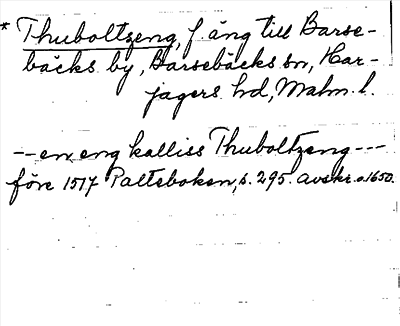 * Thuboltzeng, f. äng till Barse-
bäcks by, Barsebäcks sn, Har-
jagers hd, Malm. l.
-- en eng kalliss Thuboltzeng ---
före 1517 Palteboken, s. 295. avskr. o. 1650.